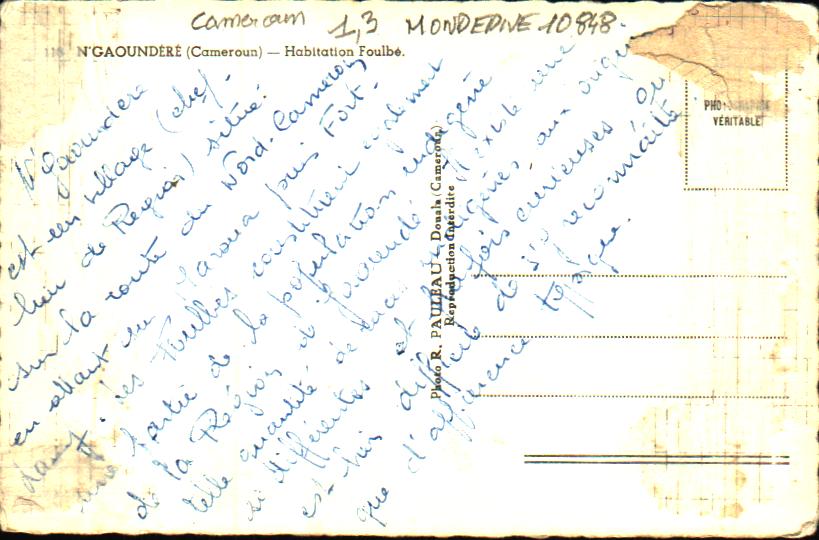 Cameroun 1,3 MONDEDIVE 10848.
N'GAOUNDÉRÉ (Cameroun) — Habitation Foulbé.
PHOTOGRAPHIE
VÉRITABLE
Photo R. PAULEAU - Douala (Cameroun)
Reproduction Interdite
N'Gaoundere
est un village (chef-
lieu de Région) situé
sur la route du Nord-Cameroun
en allant sur Garoua puis Fort-
Lamy. Les Foulbés constituent également
une partie de la population indigène
de la Région de Gaoundé. Il existe une
telle quantité de races indigènes aux origines
si différentes et parfois curieuses qu'
est très difficile de s'y reconnaître
que d'apparence typique.